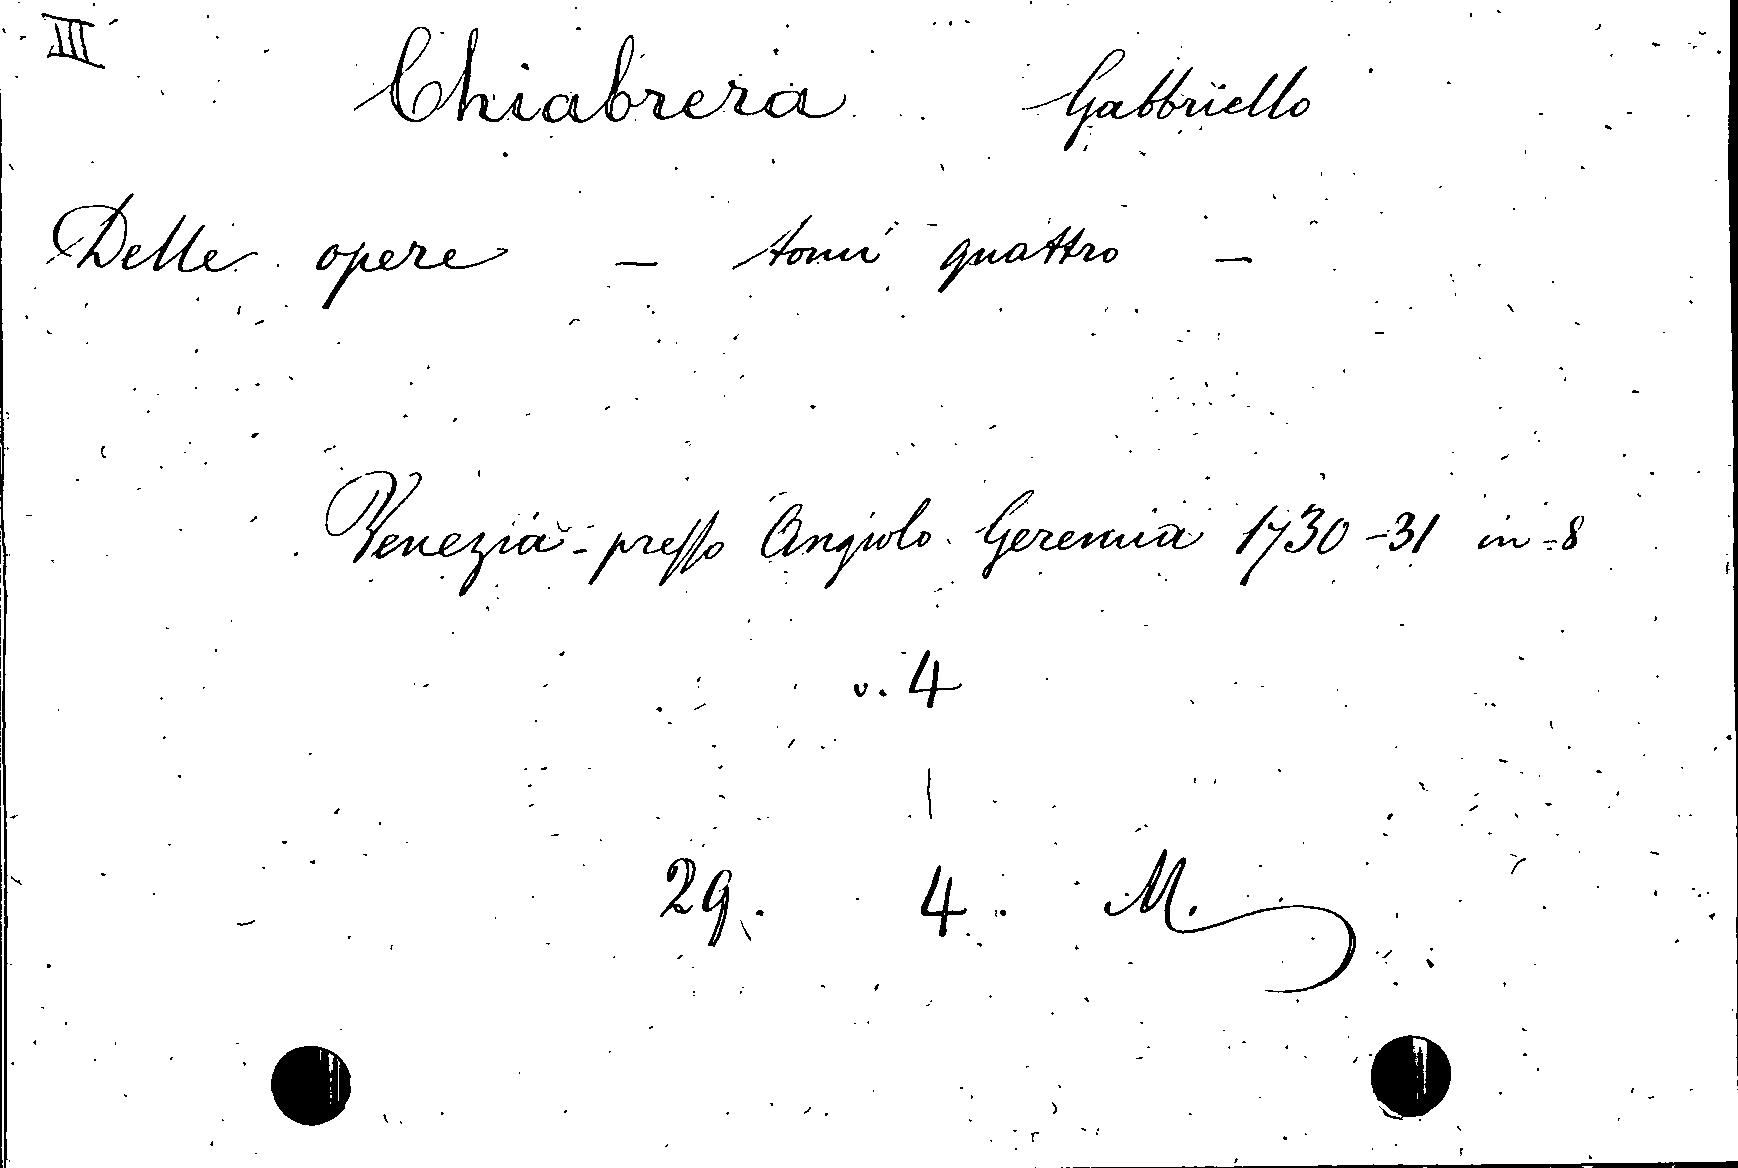 III
Chiabrera Gabbriello
Delle opere – tomi quattro –
Venezia - presso Angiolo Geremia 1730-31 in-8
v. 4
|
29. 4. M.